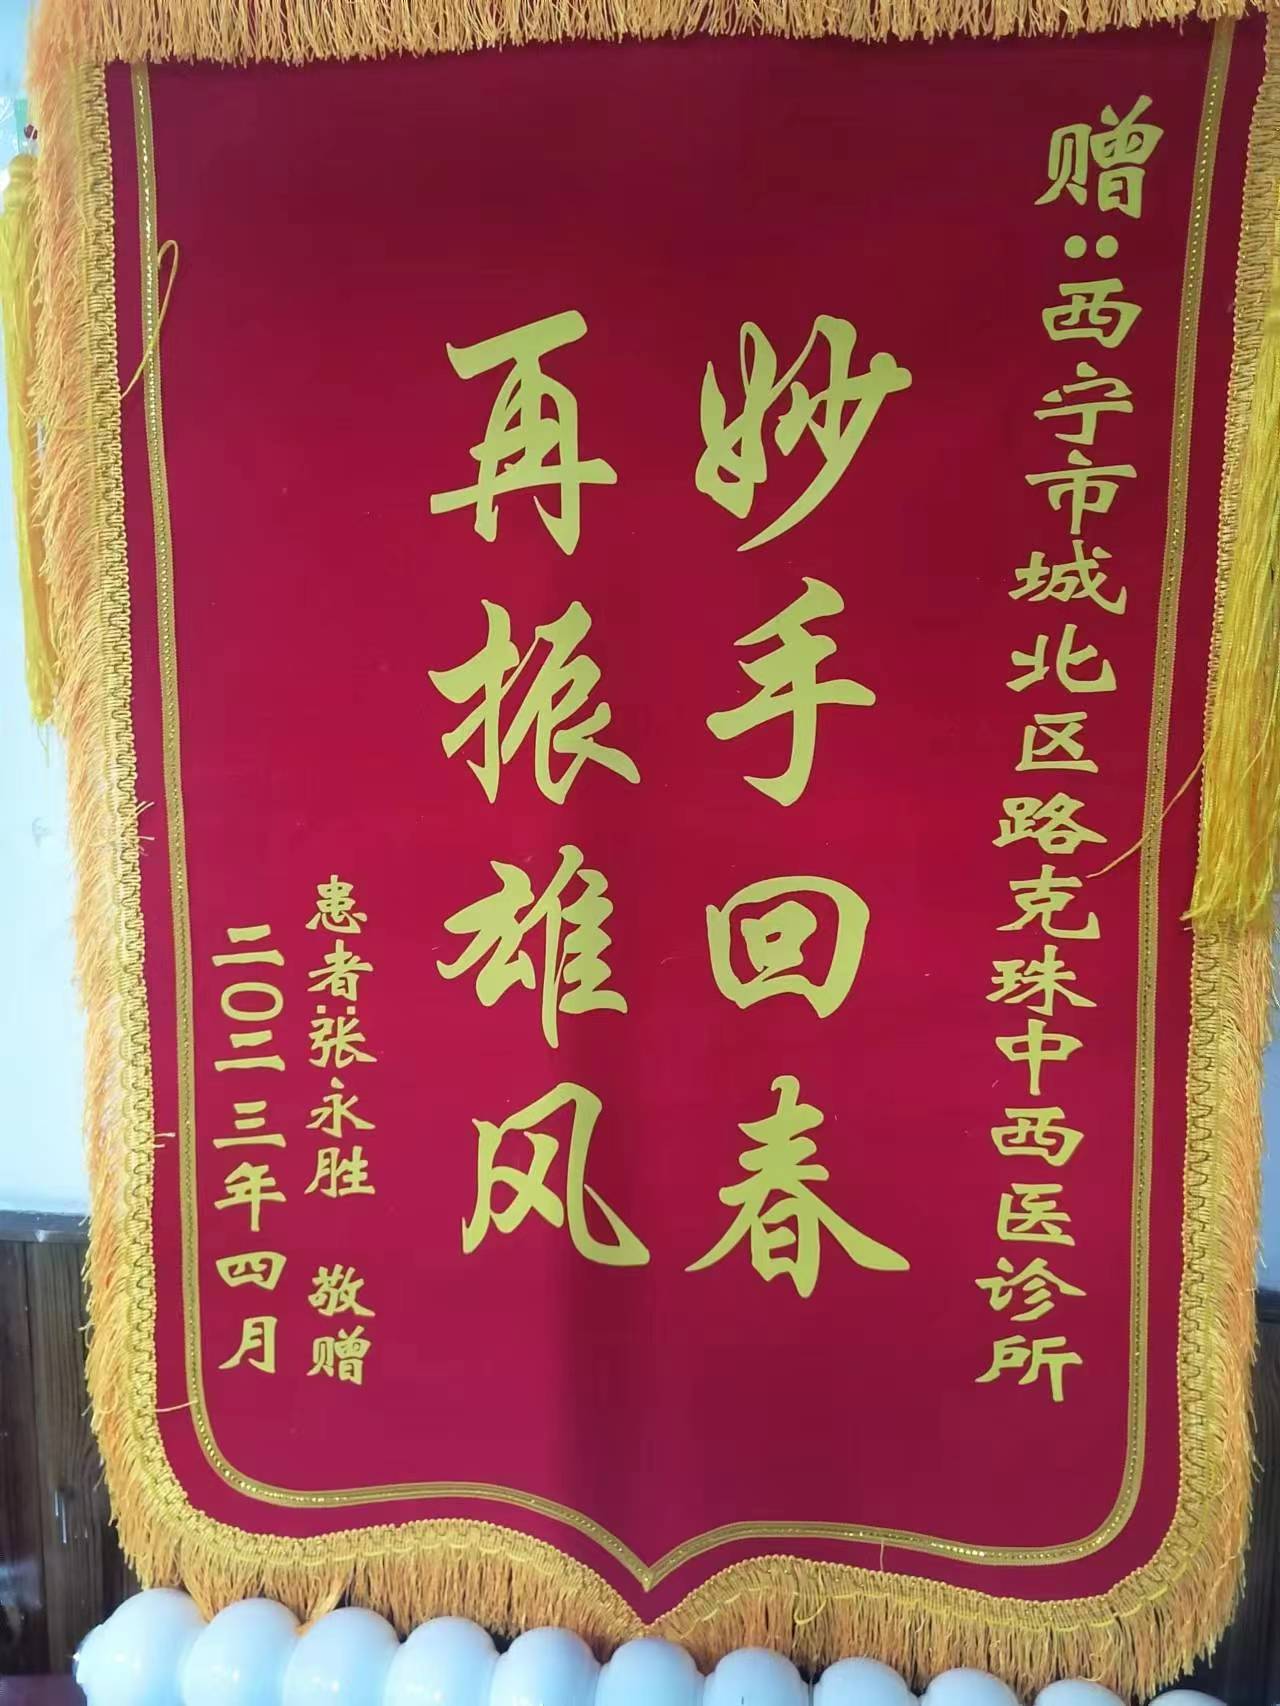 赠：西宁市城北区路克珠中西医诊所
妙手回春
再振雄风
患者：张永胜 敬赠
二〇二三年四月